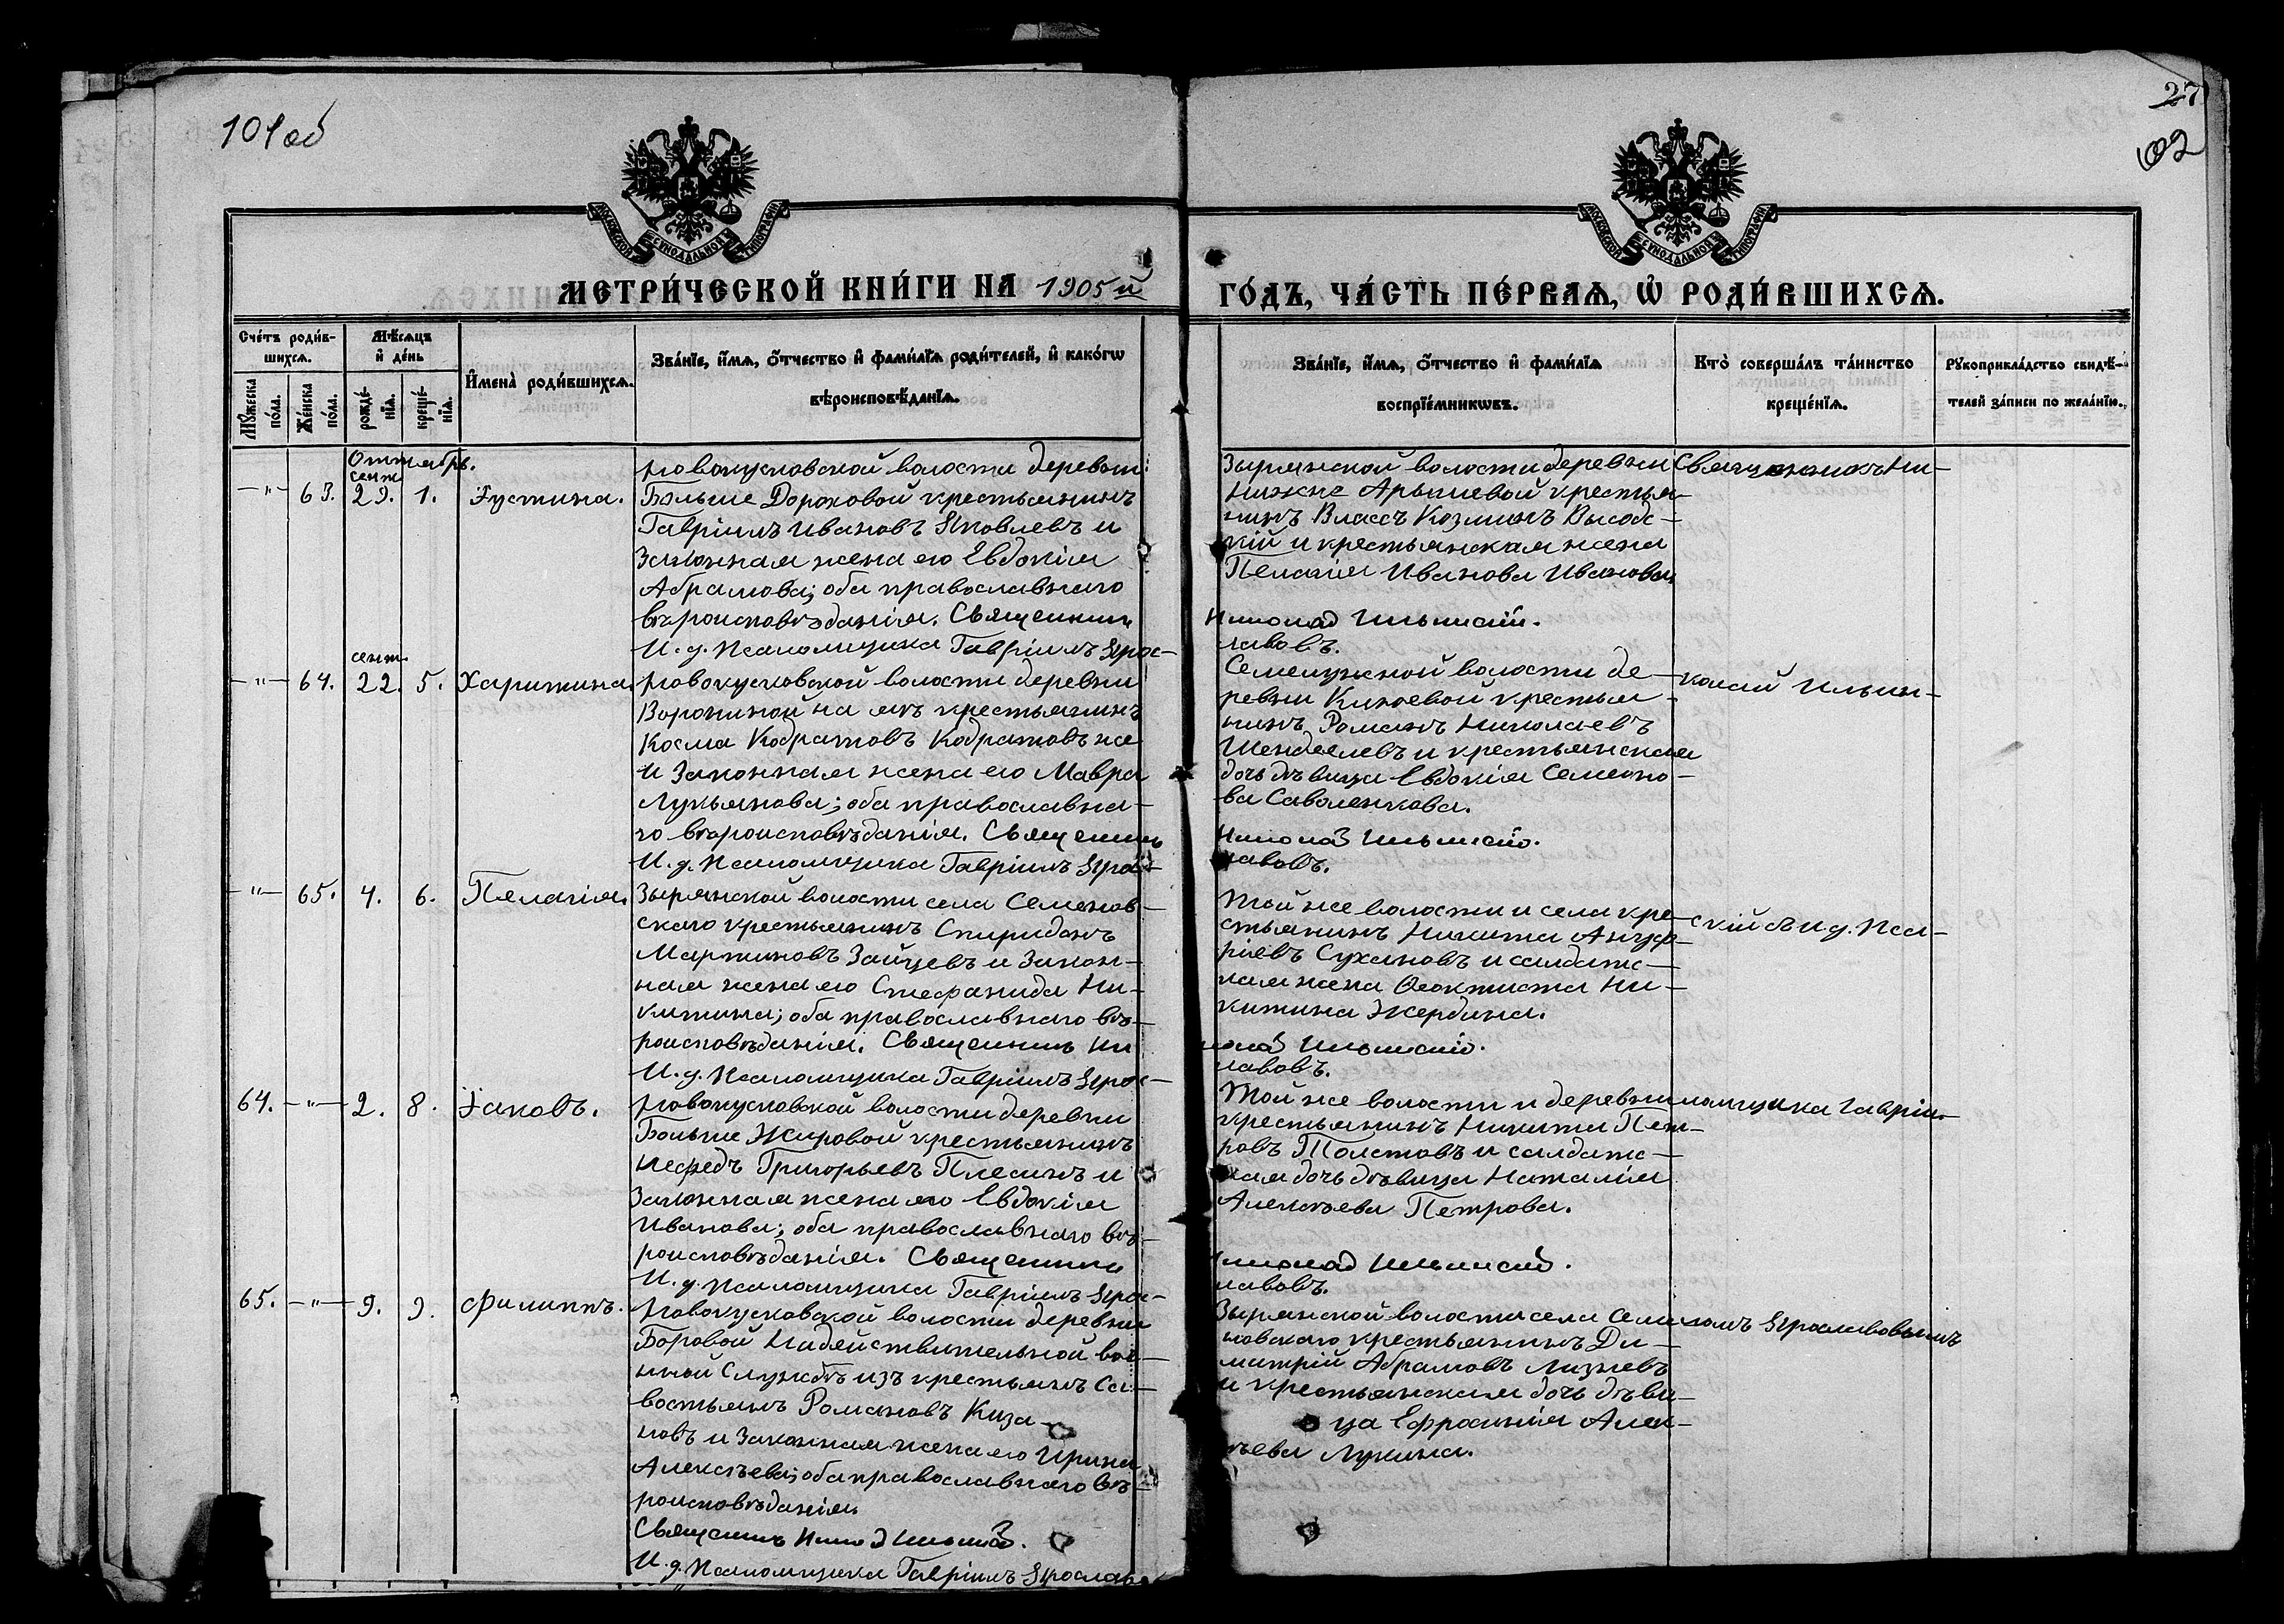 101об
27
102
МОСКОВСКОЙ СѴНОДАЛЬНОЙ ТИПОГРАФІИ
МОСКОВСКОЙ СѴНОДАЛЬНОЙ ТИПОГРАФІИ
МЕТРИ́ЧЕСКОЙ КНИ́ГИ НА 1905й
ГО́ДЪ, ЧА́СТЬ ПЕ́РВАѦ, Ѡ҆ РОДИ́ВШИХСѦ.
Сче́тъ роди́в-
шихсѧ.
Мꙋ́жеска по́ла.
Же́нска по́ла.
Мѣ́сѧцъ
и҆ де́нь
рожде́-
нїѧ.
креще́-
нїѧ.
И҆мена̀ роди́вшихсѧ.
Зва́нїе, и҆́мѧ, ѻ҆́тчество и҆ фами́лїѧ роди́телей, и҆ како́гѡ
вѣроисповѣ́данїѧ.
Зва́нїе, и҆́мѧ, ѻ҆́тчество и҆ фами́лїѧ
воспрїе́мникѡвъ.
Кто̀ соверша́лъ та́инство
креще́нїѧ.
Рꙋкоприкла́дство свидѣ́-
телей за́писи по жела́нїю.
Октябрь.
сент
—"— 63. 29. 1. Іустина.
Новокусковской волости деревни
Больше Дороховой крестьянинъ
Гавріилъ Ивановъ Яковлевъ и
Законная жена его Евдокія
Абрамова; оба православнаго
вѣроисповѣданія. Священникъ
И. д. Псаломщика Гавріилъ Ярос-
Зырянской волости деревни
Нижне Арышевой крестья-
нинъ Власъ Козминъ Высоц-
кій и крестьянская жена
Пелагія Иванова Иванова.
Николай Ильинскій.
лавовъ.
Священникъ Ни-
сент.
—"— 64. 22. 5. Харитина.
Новокусковской волости деревни
Ворониной на яѣ крестьянинъ
Косма Кодратовъ Кодратовъ же
и Законная жена его Мавра
Лукьянова; оба православна-
го вѣроисповѣданія. Священникъ
И. д. Псаломщика Гавріилъ Яро-
Семелужной волости де-
ревни Киноевой крестья-
нинъ Романъ Николаевъ
и крестьянская
дочь дѣвица Евдокія Семено-
ва Саволенкова.
Николай Ильинскій.
лавовъ.
колай Ильин-
—"— 65. 4. 6. Пелагія.
Зырянской волости села Семенов-
скаго крестьянинъ Спиридонъ
Мартиновъ Зайцевъ и Закон-
ная жена его Стефанида Ни-
китина; оба православнаго вѣ-
роисповѣданія. Священникъ Ни
И. д. Псаломщика Гавріилъ Ярос-
Той же волости и села кре-
стьянинъ Никита Ануф-
ріевъ Сухановъ и солдатс-
кая жена Ѳеоктиста Ни-
китина Жердина.
колай Ильинскій.
лавовъ.
скій съ и. д. Пса-
64. —"— 2. 8. Іаковъ.
Новокусковской волости деревни
Больше Жировой крестьянинъ
Нефедъ Григорьевъ Плесинъ и
Законная жена его Евдокія
Иванова; оба православнаго вѣ-
роисповѣданія. Священникъ
И. д. Псаломщика Гавріилъ Ярос-
Той же волости и деревни
крестьянинъ Никита Пет-
ровъ Толстовъ и солдатс-
кая дочь дѣвица Наталія
Алексѣева Петрова.
Николай Ильинскій.
лавовъ.
ломщика Гавріи-
65. —"— 9. 9. Филиппъ.
Новокусковской волости деревни
Боровой На дѣйствительной вое-
нной Службѣ изъ крестьянъ Са-
востьянъ Романовъ Каза-
новъ и Законная жена его Ирина
Алексѣева; оба православнаго вѣ-
роисповѣданія.
Священникъ Николай Ильинскій.
И. д. Псаломщика Гавріилъ Ярославовъ
Зырянской волости села Семе-
новскаго крестьянинъ Ди-
митрій Абрамовъ Лизневъ
и крестьянская дочь дѣви-
ца Ефросинія Алек-
сѣева Лукина.
ломъ Ярославовымъ